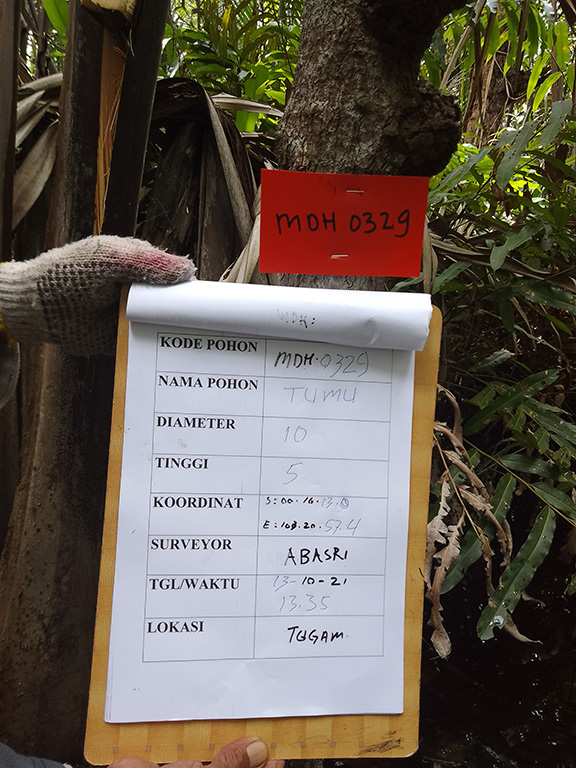 MDH 0329
KODE POHON MDH.0329
NAMA POHON TUMU
DIAMETER 10
TINGGI 5
KOORDINAT S:00.16.13.0
E:103.20.57.4
SURVEYOR ABASRI
TGL/WAKTU 13-10-21
13.35
LOKASI TUGAM.